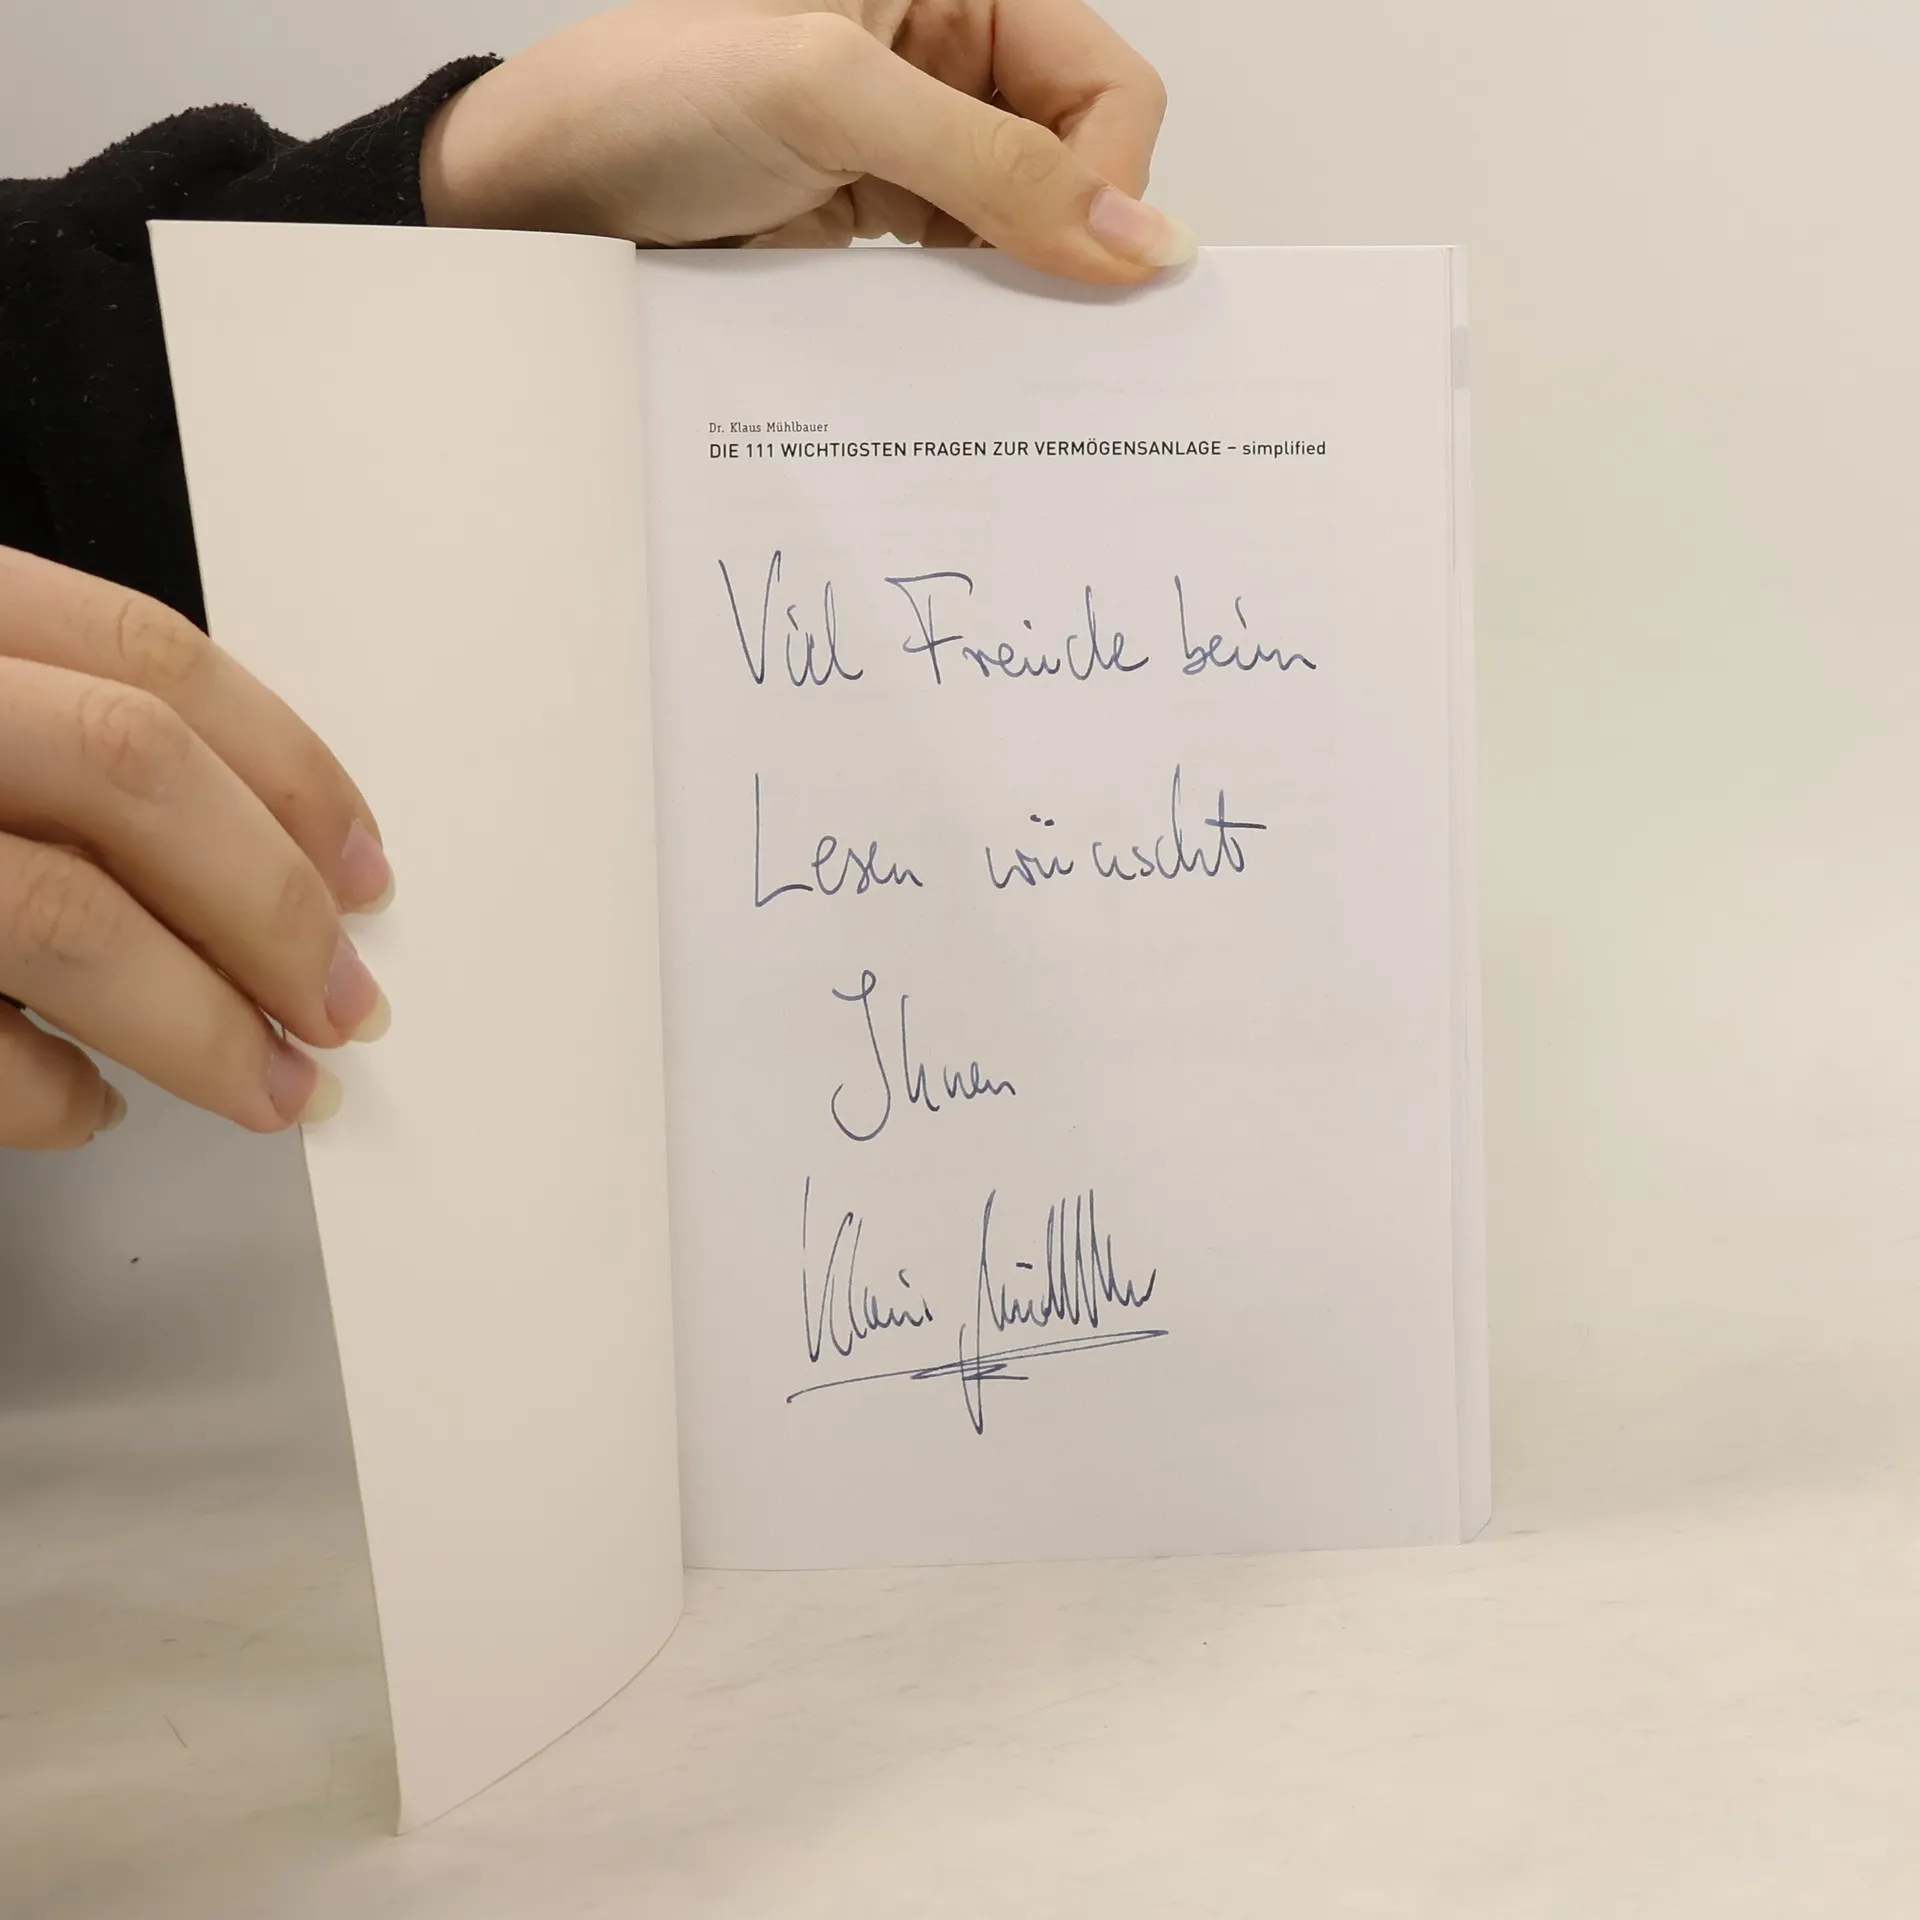 Dr. Klaus Mühlbauer
DIE 111 WICHTIGSTEN FRAGEN ZUR VERMÖGENSANLAGE – simplified
Viel Freude beim
Lesen wünscht
Ihnen
Klaus Mühlbauer